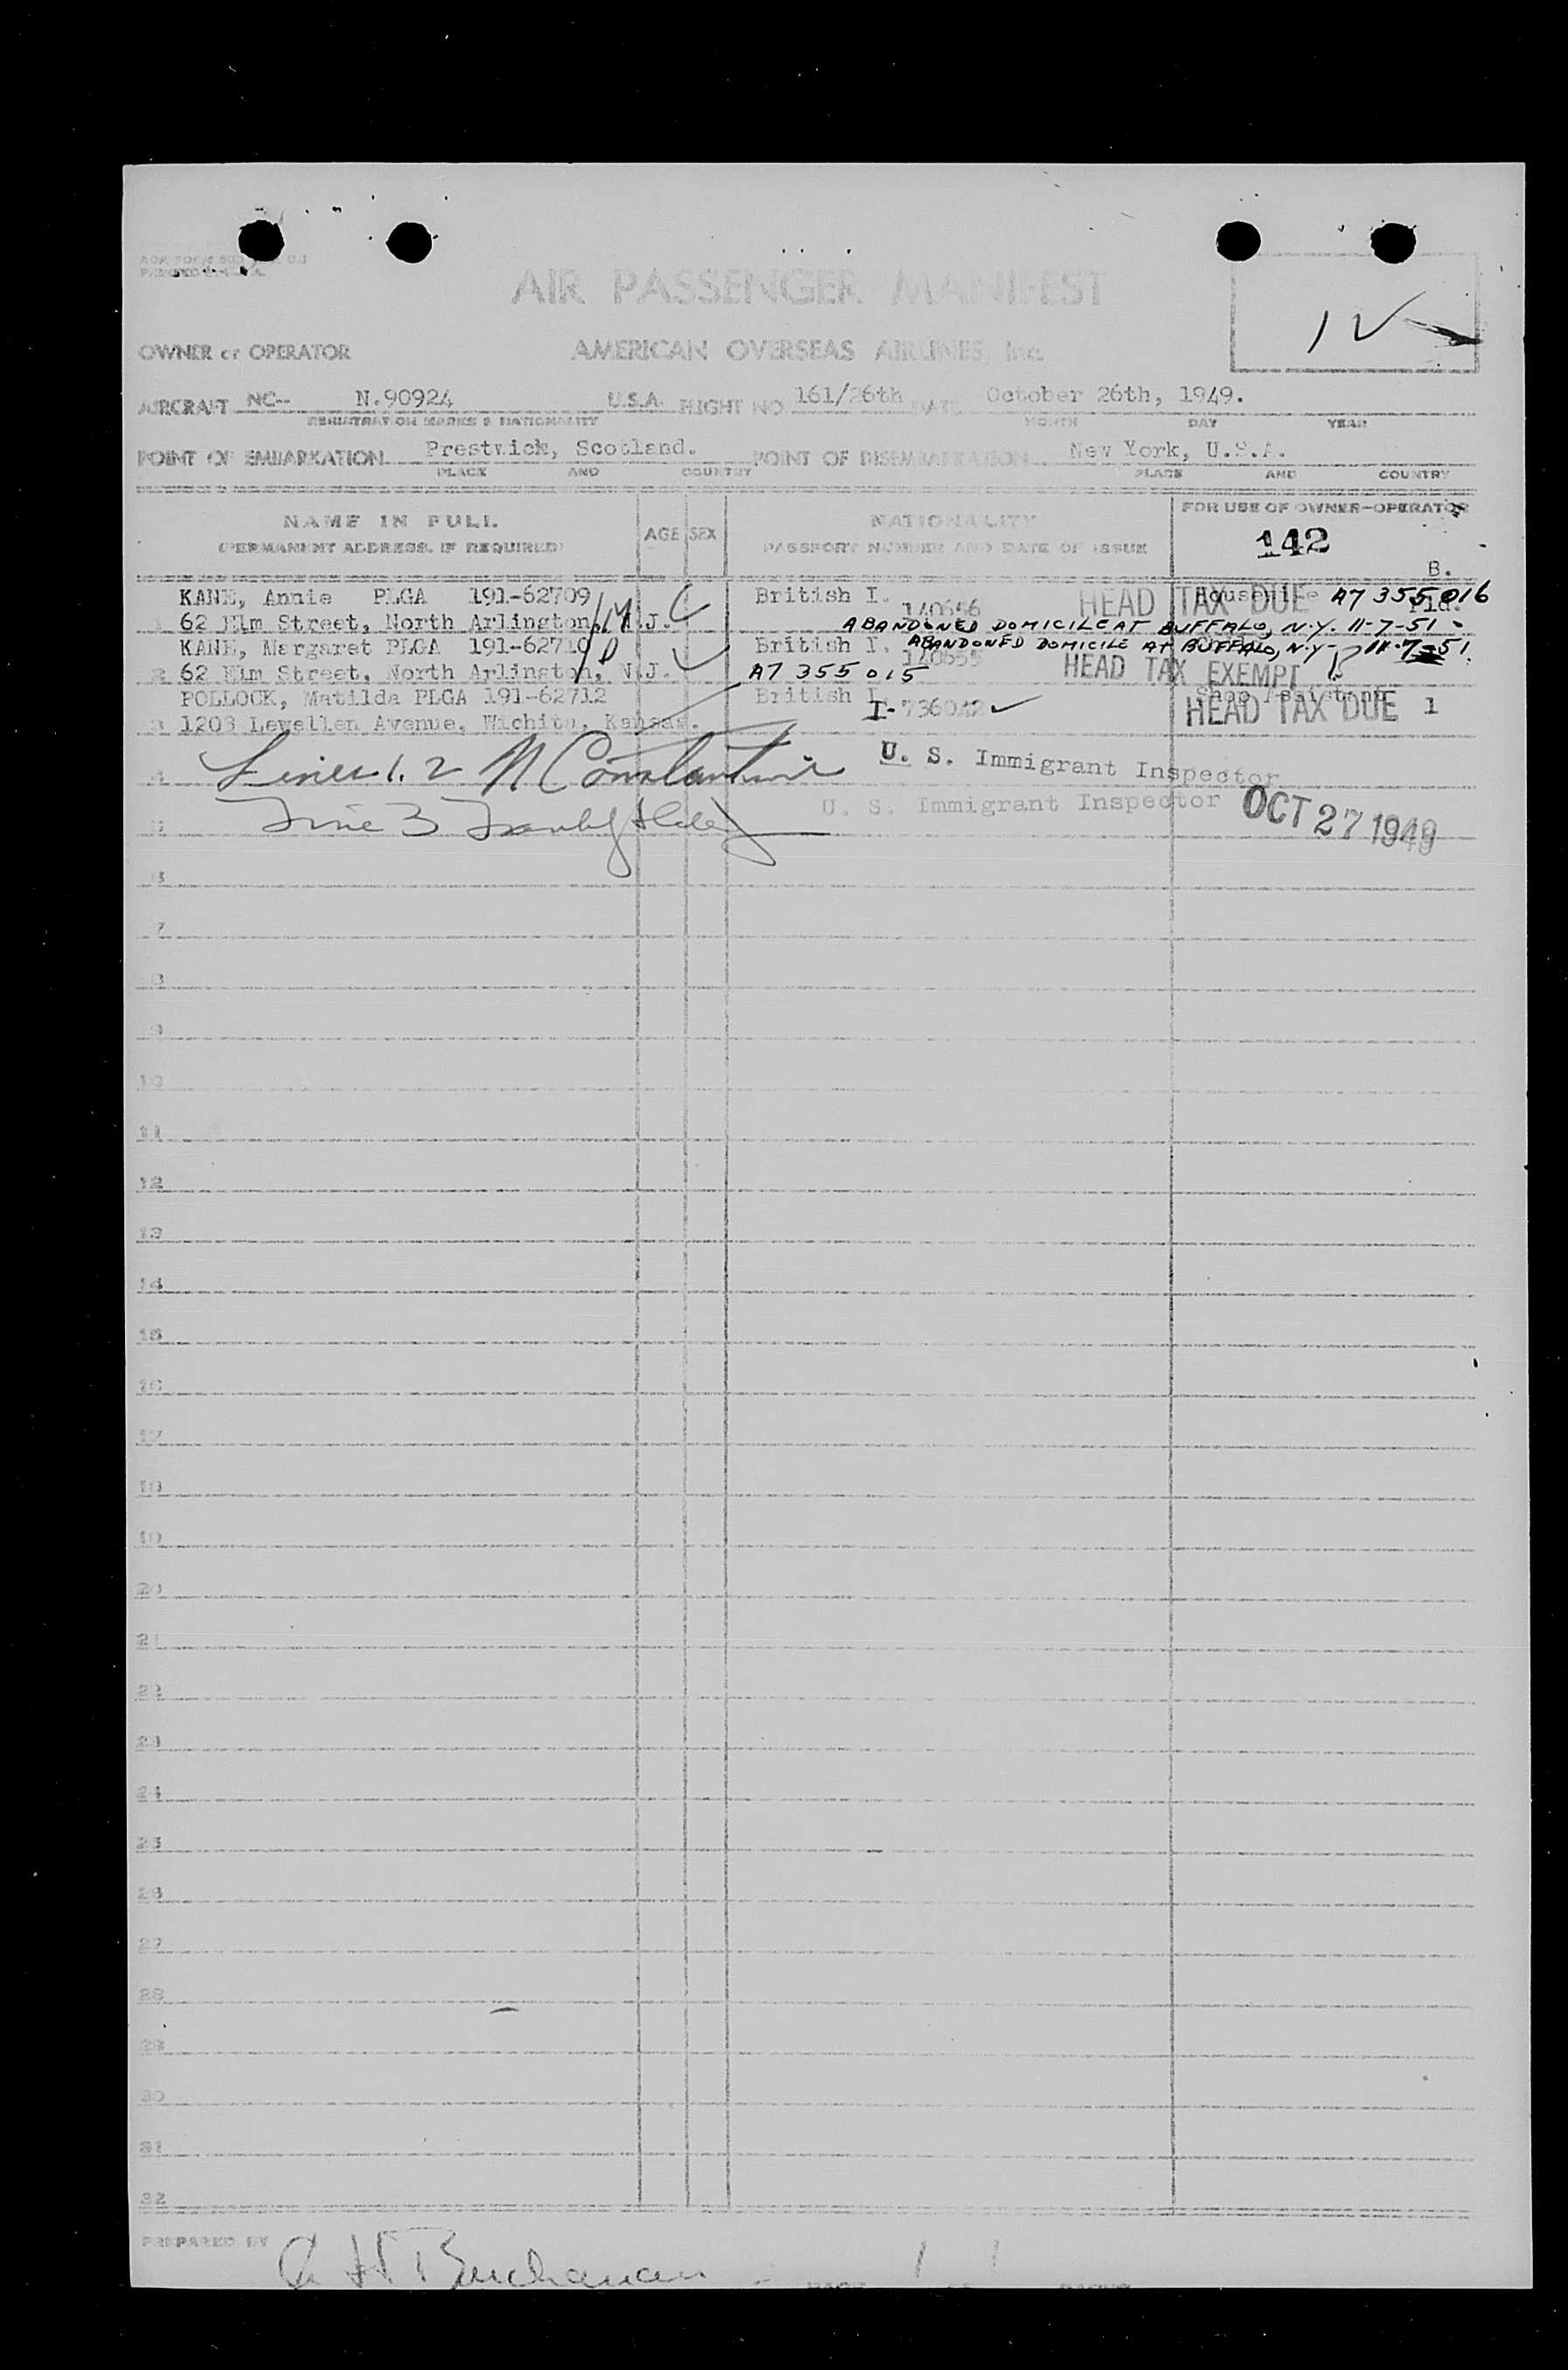 AIR PASSENGER MANIFEST
OWNER or OPERATOR AMERICAN OVERSEAS AIRLINES, Inc.
AIRCRAFT NC-- N.90924 U.S.A. FLIGHT NO. 161/26th DATE October 26th, 1949.
REGISTRATION MARKS & NATIONALITY MONTH DAY YEAR
POINT OF EMBARKATION Prestwick, Scotland. POINT OF DISEMBARKATION New York, U.S.A.
PLACE AND COUNTRY PLACE AND COUNTRY
NAME IN FULL AGE SEX NATIONALITY FOR USE OF OWNER-OPERATOR
(PERMANENT ADDRESS, IF REQUIRED) PASSPORT NUMBER AND DATE OF ISSUE 142
B.
KANE, Annie PLGA 191-62709 British I. HEAD TAX DUE Housewife A7 355 016
1 62 Elm Street, North Arlington, N.J. 140656
ABANDONED DOMICILE AT BUFFALO, N.Y. 11-7-51
KANE, Margaret PLGA 191-62710 British I. ABANDONED DOMICILE AT BUFFALO, N.Y. 11-7-51
2 62 Elm Street, North Arlington, N.J. A7 355 015 140655 HEAD TAX EXEMPT
POLLOCK, Matilda PLGA 191-62712 British I. Shop Assistant
3 1203 Lewellen Avenue, Wichita, Kansas. I-736042 HEAD TAX DUE 1
4 Lines 1. 2 N Constantine U. S. Immigrant Inspector
5 Line 3 U. S. Immigrant Inspector OCT 27 1949
6
7
8
9
10
11
12
13
14
15
16
17
18
19
20
21
22
23
24
25
26
27
28
29
30
31
32
PREPARED BY A H Buchanan 1 1